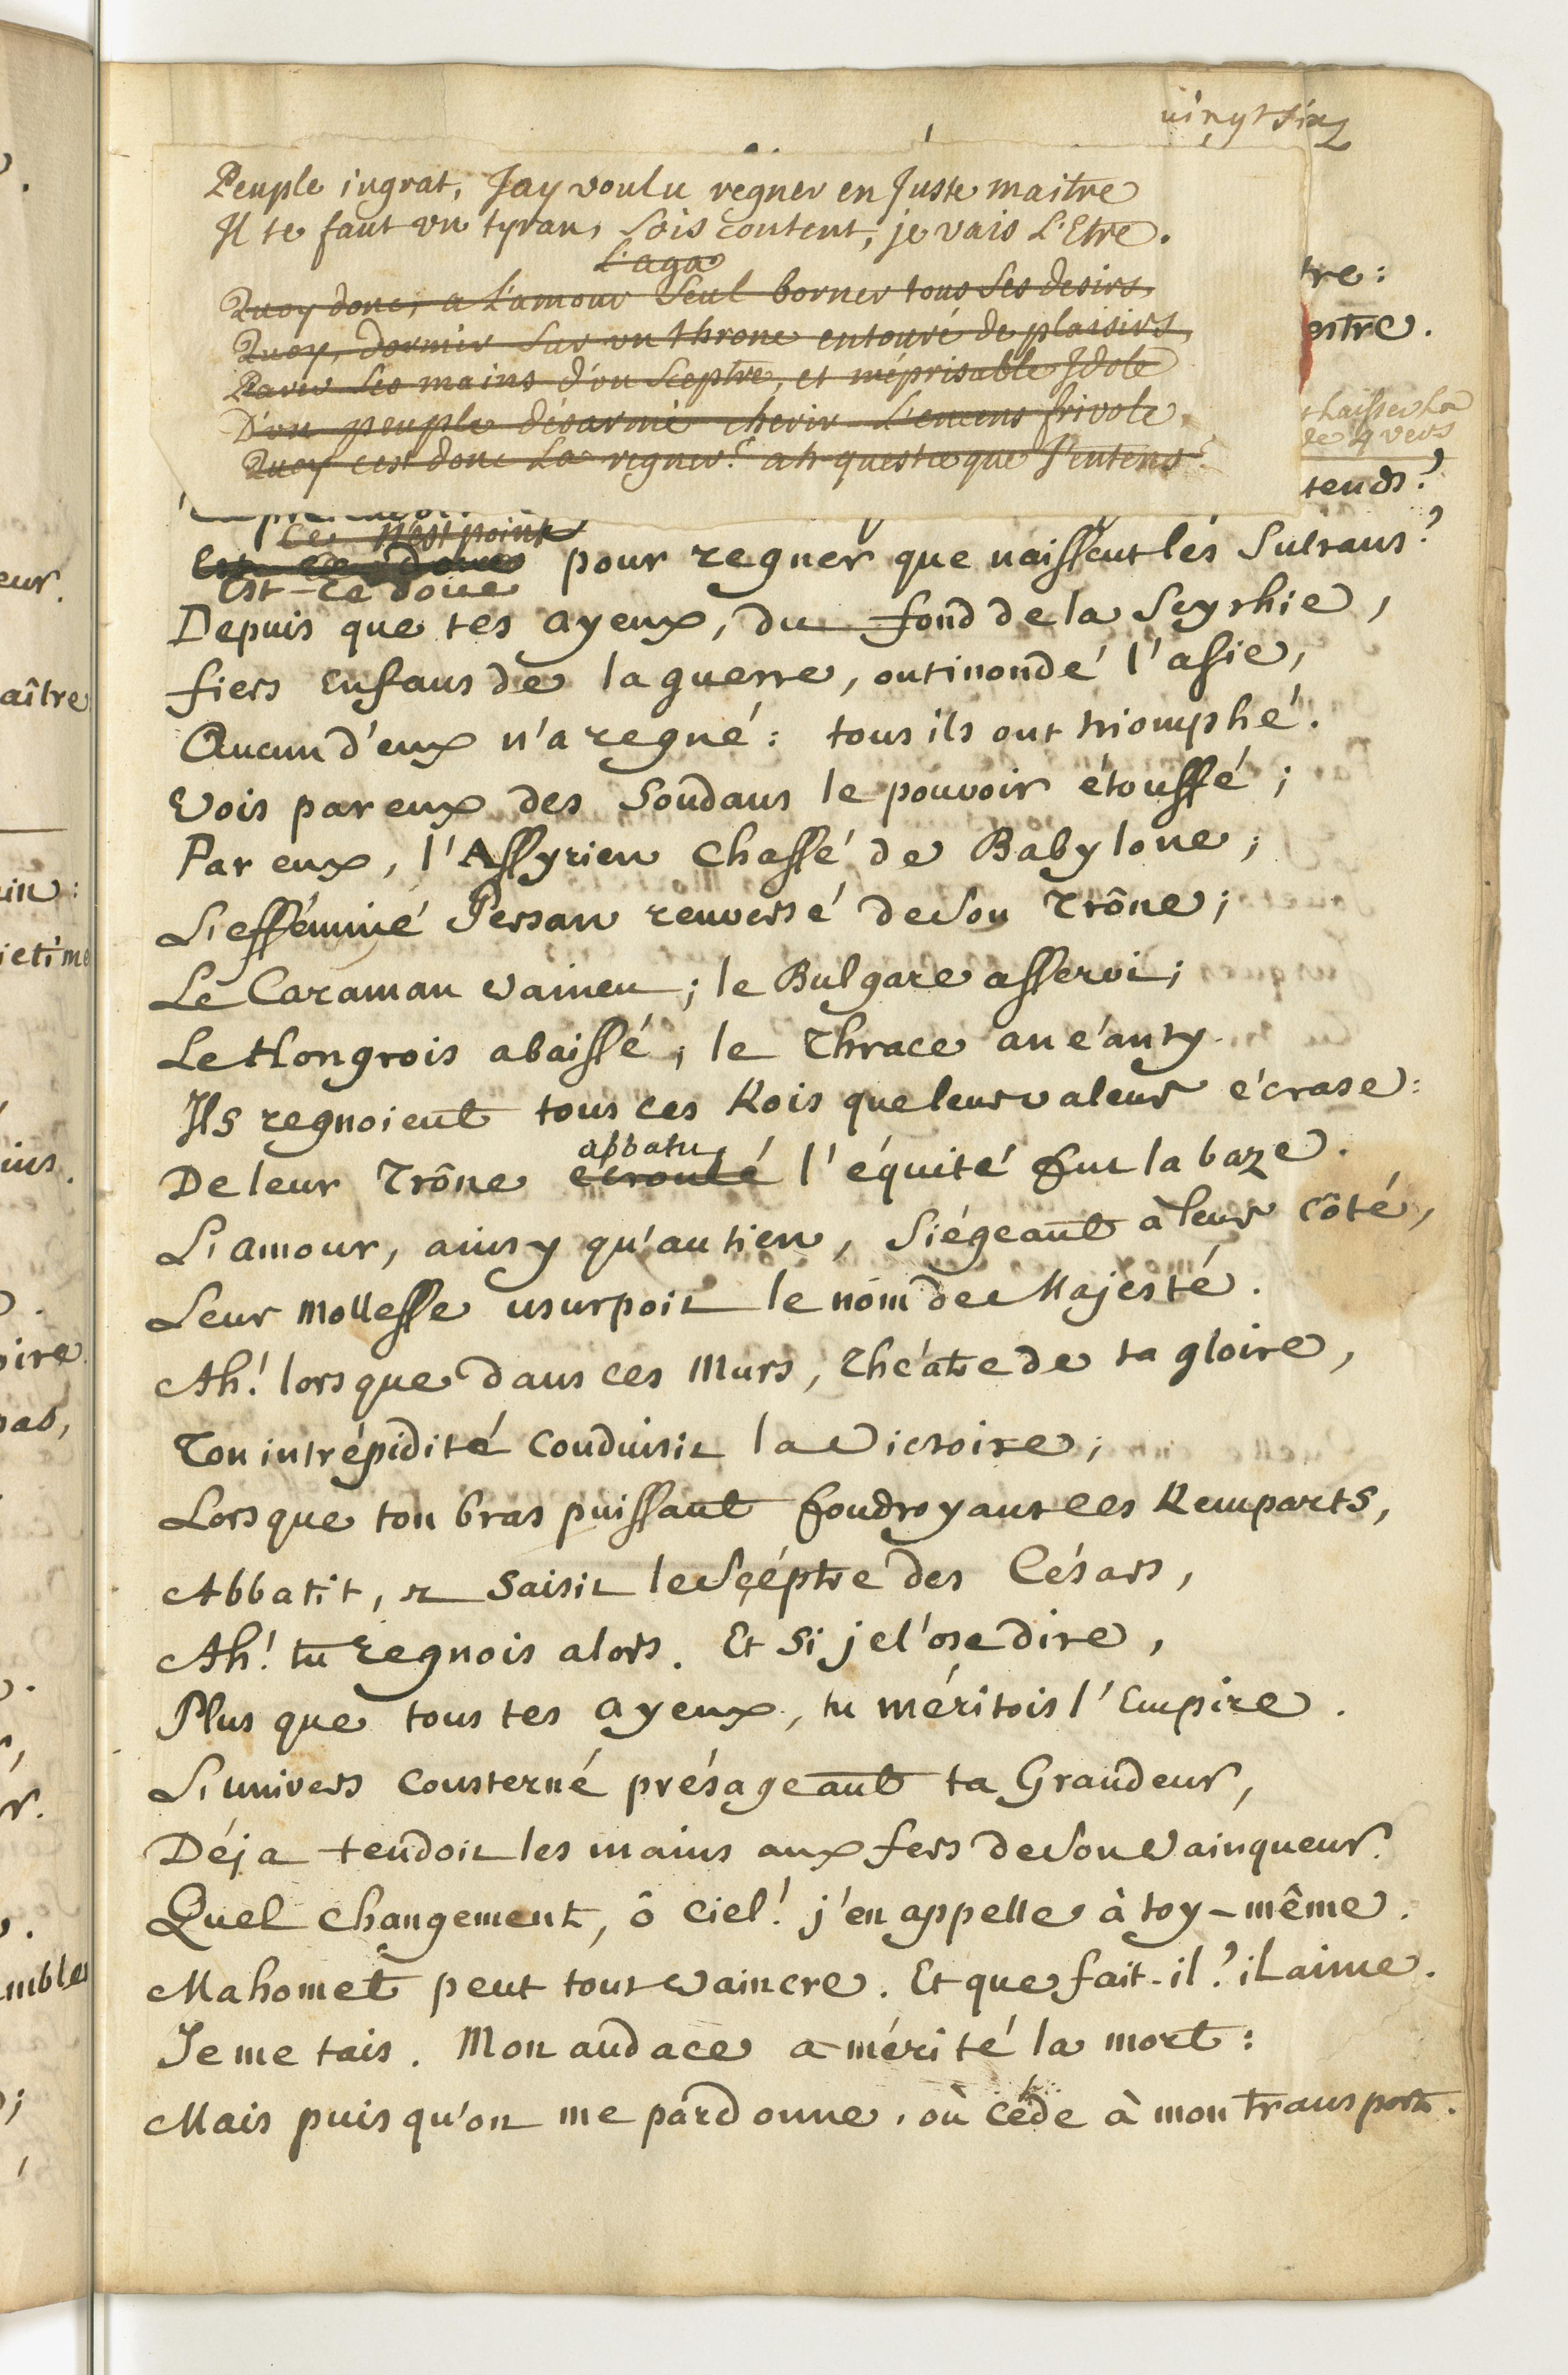 vingt six
Peuple ingrat, Jay voulu regner en Juste maitre
Il te faut un tyran, Sois content, je vais L'Etre.
L'aga
Quoy donc, a L'amour Seul borner tous Ses desirs,
Quoy, dormir Sur un throne entouré de plaisirs,
Parer Ses mains d'un Sceptre, et méprisable Idole
D'un peuple désarmé cherir L'encens frivole,
Quoy cest donc La regner? ah questce que J'entens?
tre:
estre.
Laisser La
de 4 vers
tends?
Ce n'est point
Est-ce donc pour regner que naissent les Sultans?
Est-ce donc
Depuis que tes ayeux, du fond de la Scythie,
fiers Enfans de la guerre, ont inondé l'asie,
Aucun d'eux n'a regné: tous ils ont triomphé.
Vois par eux des Soudans le pouvoir étouffé;
Par eux, l'Assyrien Chassé de Babylone;
L'efféminé Persan renversé de Son Trône;
Le Caraman vaincu; le Bulgare asservi;
Le Hongrois abaissé; le Thrace anéanty.
Ils regnoient tous ces Rois que leur valeur écrase:
abbatu
De leur Trône écroulé l'équité fut la baze.
L'amour, ainsy qu'au tien, Siégeant à leur côté,
Leur Mollesse usurpoit le nom de Majesté.
Ah! lorsque dans ces Murs, théatre de ta gloire,
Ton intrépidité Conduisit la Victoire;
Lorsque ton bras puissant foudroyant ces Remparts,
Abbatit, et Saisit le Sçéptre des Césars,
Ah! tu regnois alors. Et Si je l'ose dire,
Plus que tous tes ayeux, tu méritois l'Empire.
L'univers Consterné présageant ta Grandeur,
Déja tendoit les mains aux fers de Son Vainqueur.
Quel Changement, ô Ciel! j'en appelle à toy-même.
Mahomet peut tout vaincre. Et que fait-il? il aime.
Je me tais. Mon audace a mérité la mort:
Mais puis qu'on me pardonne, où cède à mon transport.